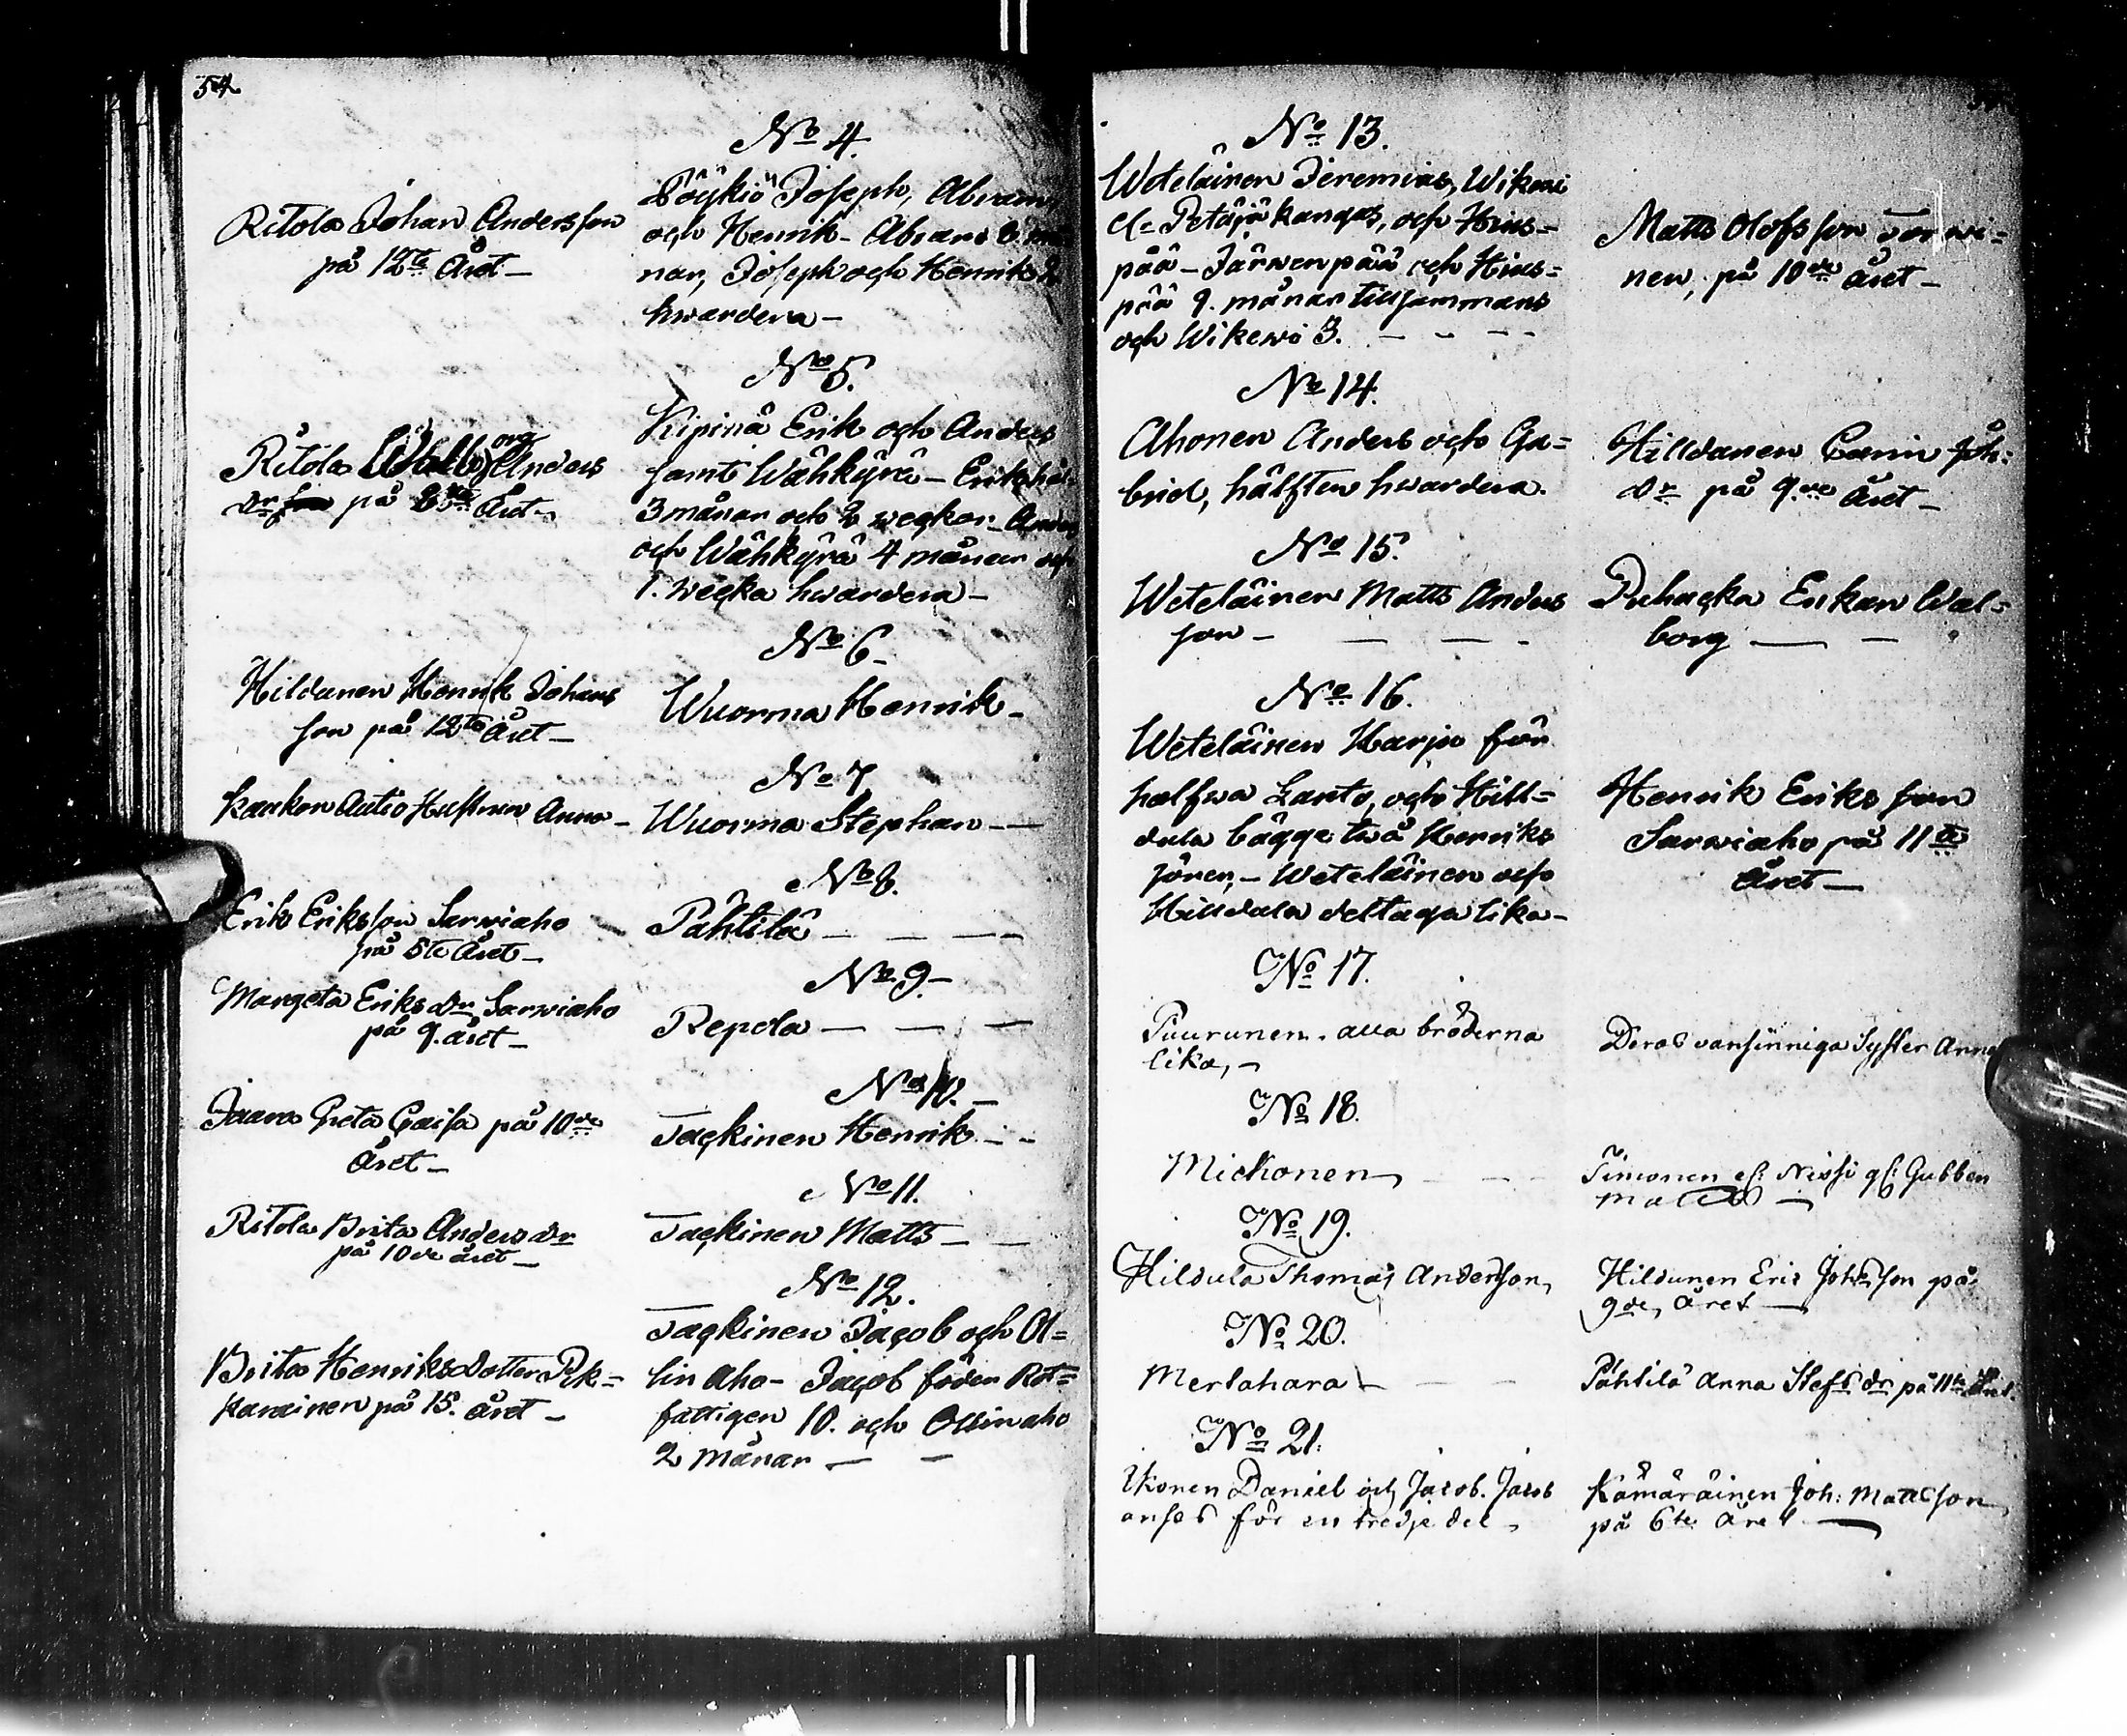 54
No 4.
Ritola Johan Andersson
på 12te Året -
Pöykiö Joseph, Abram
och Henrik - Abram 6 må
nar, Joseph och Henrik 3
hwardera -
No 5.
Ritola Walborg Anders
dr på 8de Året -
Kipinä Erik och Anders
samt Wähkyrä - Erik
3 månar och 2 weckor - Anders
och Wähkyrä 4 månar och
1. wecka hwardera -
No 6 -
Hildunen Henrik Johans
son på 12te Året -
Wuorma Henrik -
No 7
Kaukon Autio Hustrun Anna -
Wuorma Stephan -
No 8.
Erik Eriksson Sarwiaho
på 5te Året -
Pähtilä -
No 9 -
Margeta Eriks dr Sarwiaho
på 9. året -
Repola -
No 10. -
Jaara Greta Caisa på 10de
Året -
Tackinen Henrik -
No 11.
Ritola Brita Anders dr
på 10de året -
Tackinen Matts -
No 12.
Brita Henriksdotter Pek=
karainen på 15. året -
Tackinen Jacob och Ol=
lin Aho - Jacob föder Rot=
fattigen 10. och Ollinaho
2 månar -
No 13.
Weteläinen Jeremias, Wikewi
el. Petäjäkangas, och Hius=
pää - Järwenpää och Hius=
pää 9. månar tillsammans
och Wikewi 3. -
Matts Olofsson Torwi=
nen, på 10de året -
No 14.
Ahonen Anders och Ga=
briel, hälften hwardera.
Hilldunen Carin Joh:
dr på 9de Året -
No 15.
Weteläinen Matts Anders
son -
Puhacka Enkan Wal=
borg -
No 16.
Weteläinen Harju för
halfwa Lanto, och Hill=
dula bägge twå Henriks
söner, - Weteläinen och
Hilldula deltaga lika -
Henrik Eriksson
Sarwiaho på 11te
Året -
No 17.
Puurunen. alla bröderna
lika, -
Deras vansinniga Syster Anna
No 18.
Mickonen -
Simonen el: Nissi gl: Gubben
Matts -
No 19.
Hildula Thomas Andersson,
Hildunen Eric Johsson på
9de Året -
No 20.
Mertahara -
Pähtilä Anna Stefs dr på 11te Året.
No 21.
Ikonen Daniel och Jacob. Jacob
anses för en tredje del -
Kämäräinen Joh: Mattsson
på 6te Året -